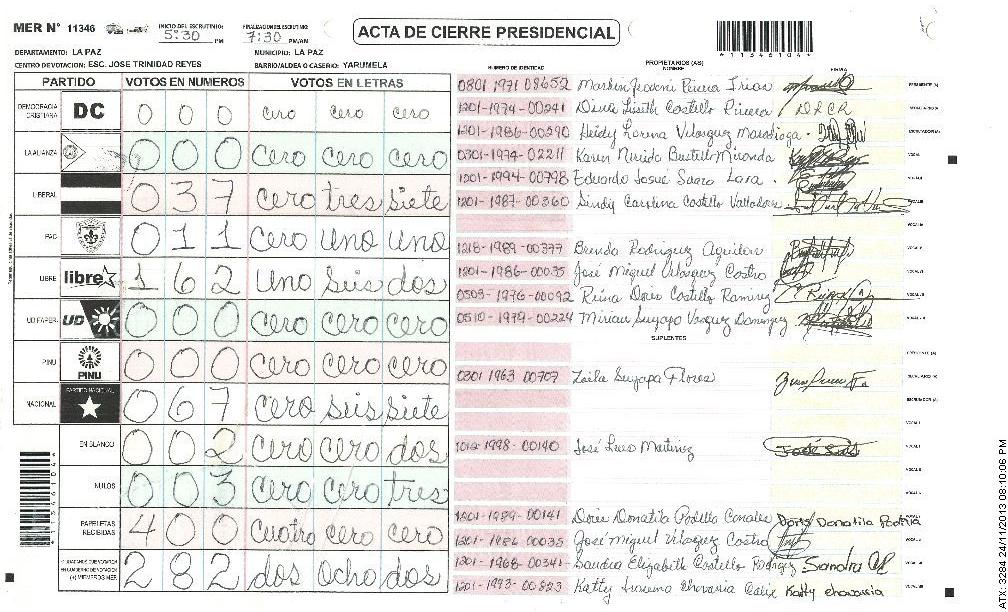 MER N° 11346 INICIO DEL ESCRUTINIO: 5:30 PM FINALIZACION DEL ESCRUTINIO: 7:30 PM/AM
ACTA DE CIERRE PRESIDENCIAL
DEPARTAMENTO: LA PAZ MUNICIPIO: LA PAZ
CENTRO DE VOTACION: ESC. JOSE TRINIDAD REYES BARRIO/ALDEA O CASERIO: YARUMELA
PARTIDO VOTOS EN NUMEROS VOTOS EN LETRAS
DEMOCRACIA CRISTIANA DC 0 0 0 cero cero cero
LA ALIANZA 0 0 0 cero cero cero
LIBERAL 0 3 7 cero tres siete
PAC 0 1 1 cero uno uno
LIBRE libre 1 6 2 uno seis dos
UD FAPER UD 0 0 0 cero cero cero
PINU PINU 0 0 0 cero cero cero
NACIONAL PARTIDO NACIONAL 0 6 7 cero seis siete
EN BLANCO 0 0 2 cero cero dos
NULOS 0 0 3 cero cero tres
PAPELETAS RECIBIDAS 4 0 0 cuatro cero cero
2 8 2 dos ocho dos
NUMERO DE IDENTIDAD PROPIETARIOS (AS) NOMBRE FIRMA
0801 1971 08652
1201-1974-00241 Dina Liseth Costillo
1201-1986-00290 Heidy Lorena Velasquez
0301-1974-02211 Karen
1201-1994-00798 Eduardo Josué
1201-1987-00360 Sindy Carolina Costillo
1218-1989-00377 Brenda Rodriguez Aguilar
1201-1986-00035 José Miguel Velasquez Castro
0503-1976-00092 Reina Doris Costillo Ramirez
0510-1979-00224 Miriam Suyapa Vasquez Dominguez
SUPLENTES
0301 1963 00707 Zoila Suyapa Flores
1012-1998-00140 José Luis Martinez José Luis
1201-1989-00141 Doris Donatila Padilla Canales Doris Donatila Padilla
1201-1986 00035 José Miguel Velasquez Castro
1201-1968-00341 Sandra Elizabeth Costillo Rodriguez Sandra
1201-1993-00823 Katty Katty chavarria
11346104
ATX-3284 24/11/2013 08:10:06 PM